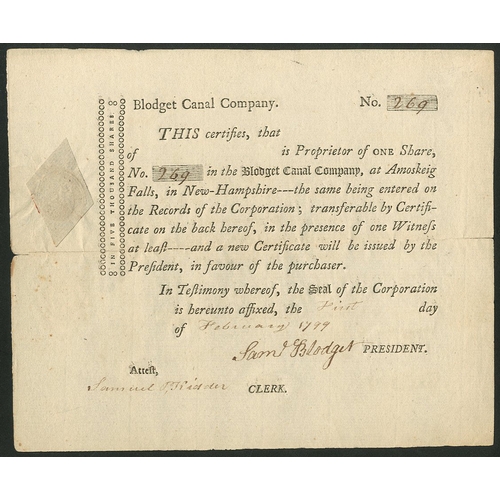 Blodget Canal Company.
No. 269
THIS certifies, that
of is Proprietor of ONE Share,
No. 269 in the Blodget Canal Company, at Amoskeig
Falls, in New-Hampshire---the same being entered on
the Records of the Corporation; transferable by Certifi-
cate on the back hereof, in the presence of one Witneſs
at least----and a new Certificate will be issued by the
President, in favour of the purchaser.
In Teſtimony whereof, the Seal of the Corporation
is hereunto affixed, the First day
of February 1799
Saml Blodget PRESIDENT.
Attest,
Samuel P. Kidder CLERK.
IN FIVE HUNDRED SHARES